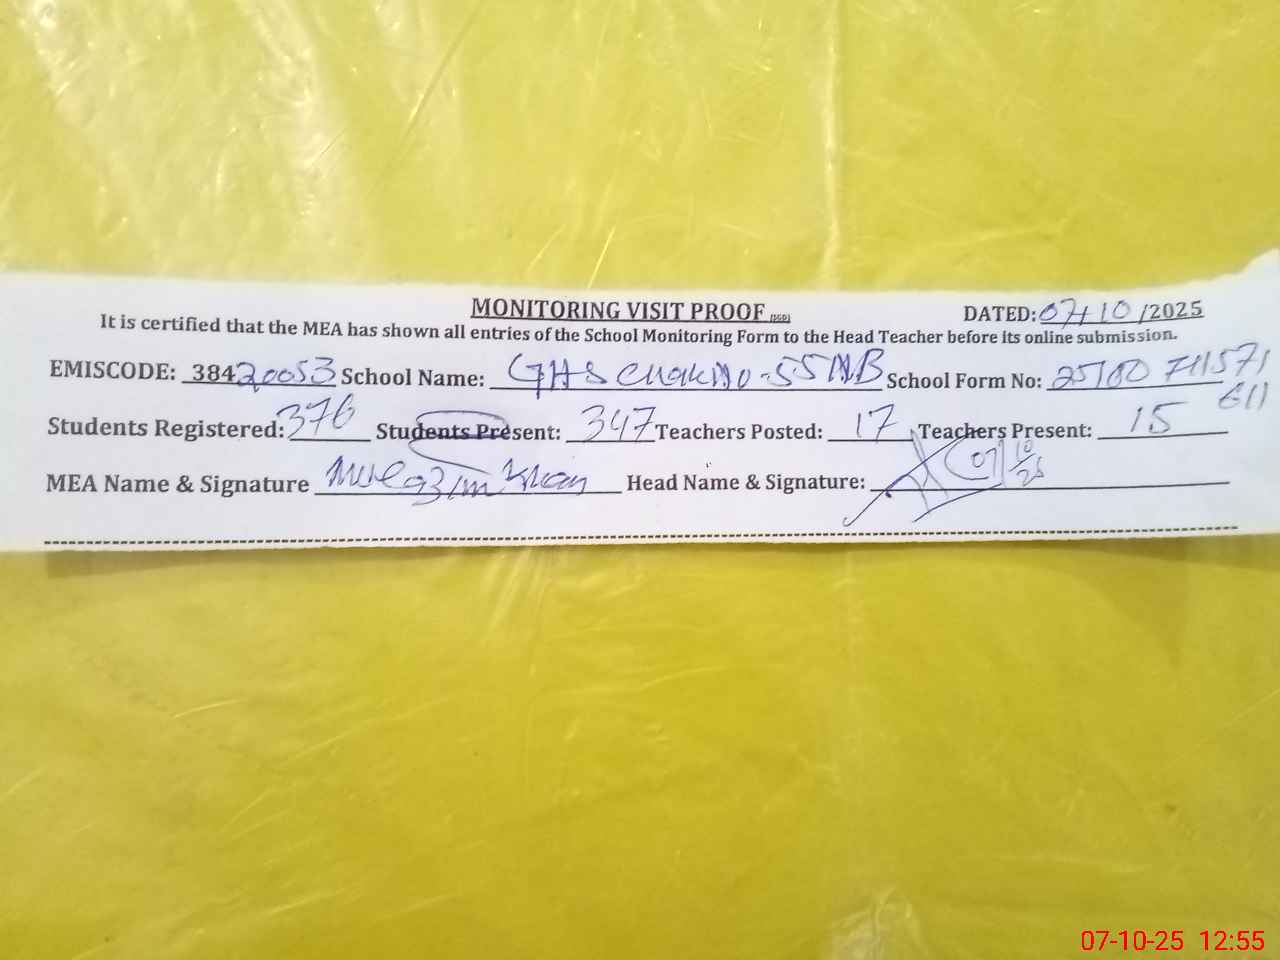 MONITORING VISIT PROOF (SGD) DATED: 07/10/2025
It is certified that the MEA has shown all entries of the School Monitoring Form to the Head Teacher before its online submission.
EMISCODE: 38420053 School Name: GHS Chak No-55NB School Form No: 25100711571
611
Students Registered: 376 Students Present: 347 Teachers Posted: 17 Teachers Present: 15
MEA Name & Signature Khan Head Name & Signature: 07/10/25
07-10-25 12:55